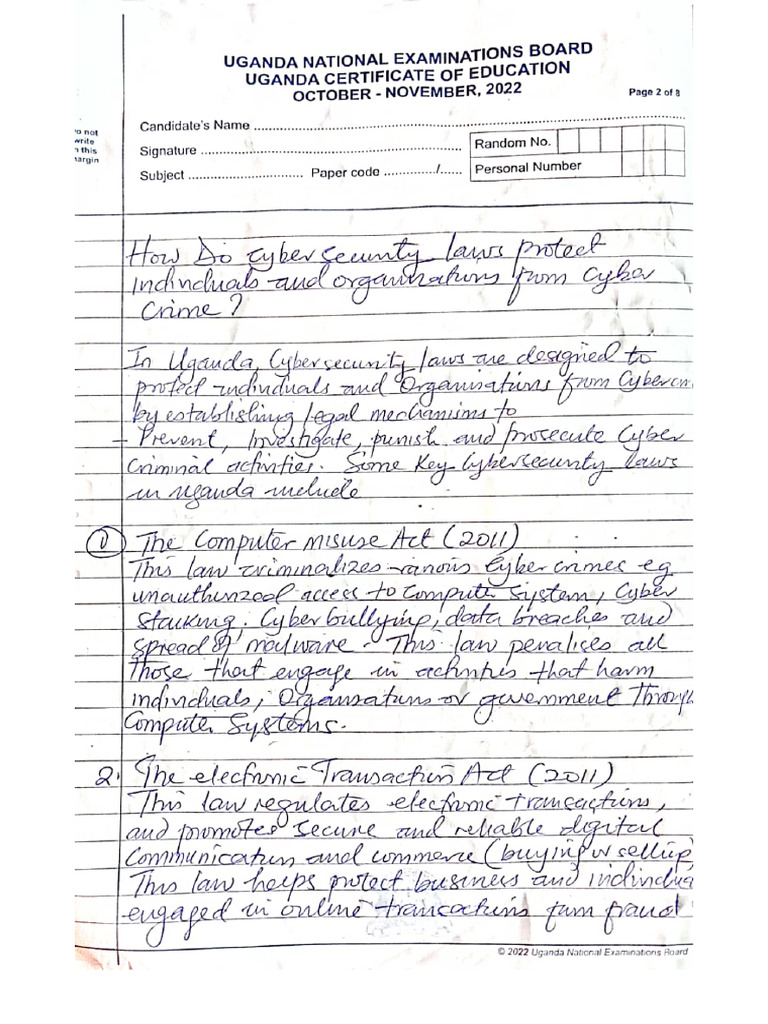 UGANDA NATIONAL EXAMINATIONS BOARD
UGANDA CERTIFICATE OF EDUCATION
OCTOBER - NOVEMBER, 2022
Page 2 of 8
o not
write
n this
margin
Candidate's Name ................................................
Signature ................................................
Random No.
Subject ............................ Paper code ............./......
Personal Number
How Do Cyber security laws protect
individuals and organisations from Cyber
Crime?
In Uganda, Cybersecurity laws are designed to
protect individuals and Organisations from Cybercri
by establishing legal mechanisms to
- Prevent, Investigate, punish and prosecute Cyber
Criminal activities. Some Key Cybersecurity laws
in Uganda include
1) The Computer misuse Act (2011)
This law criminalizes various Cyber crimes eg
unauthorized access to Computer System, Cyber
stalking, Cyber bullying, data breaches and
spread of malware. This law penalises all
those that engage in activities that harm
individuals, Organisations or government through
Computer Systems.
2. The electronic Transaction Act (2011)
This law regulates electronic transactions,
and promotes secure and reliable digital
Communication and commerce (buying or selling)
This law helps protect business and individua
engaged in online transactions from fraud
© 2022 Uganda National Examinations Board